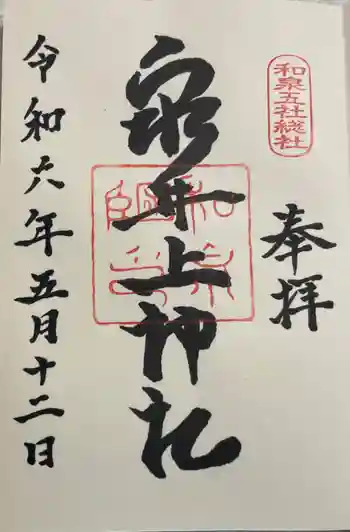 和泉五社総社
奉拝
泉井上神社
令和六年五月十二日